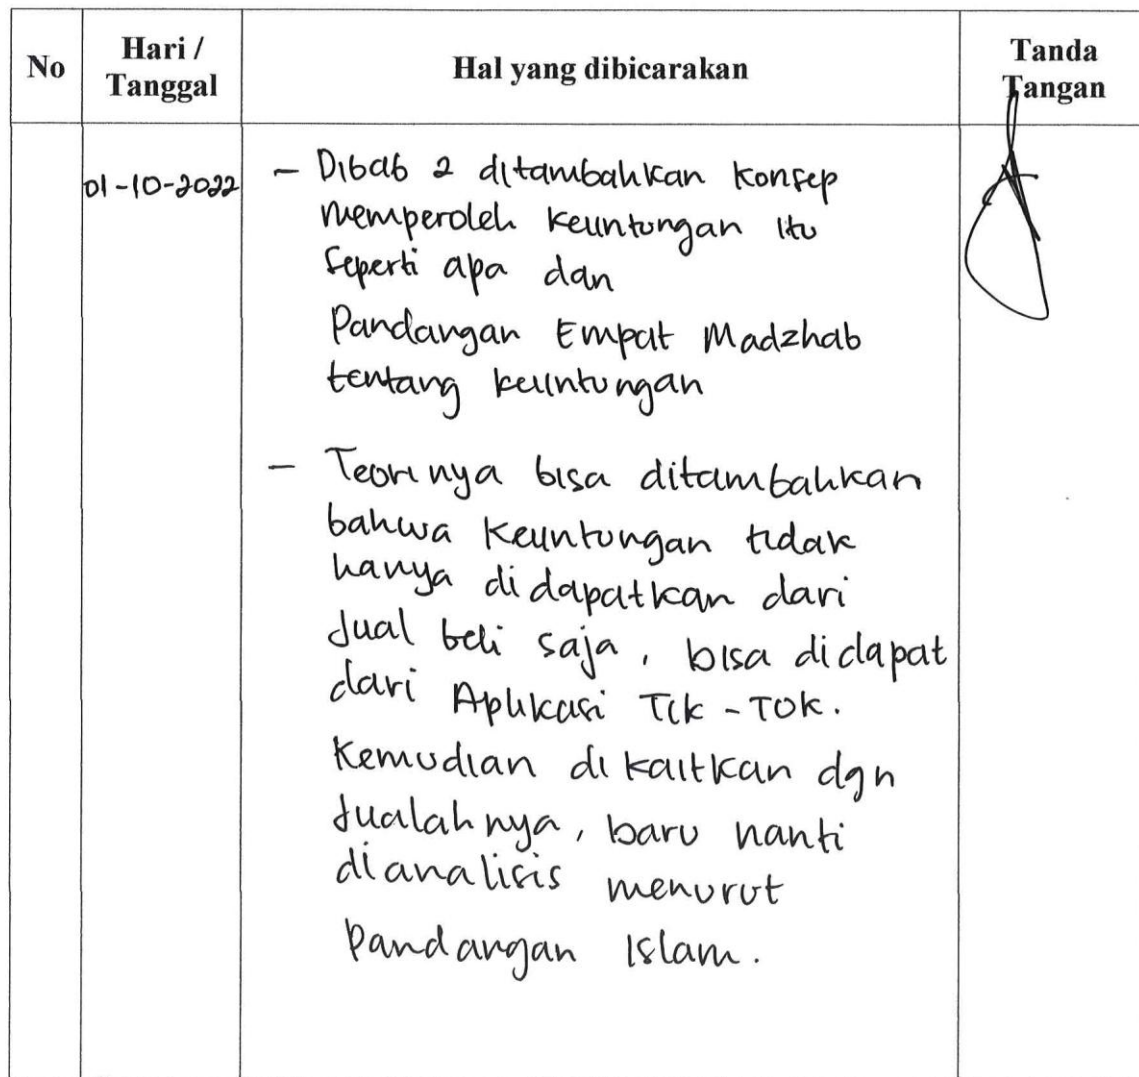 No
Hari /
Tanggal
Hal yang dibicarakan
Tanda
Tangan
01-10-2022
- Dibab 2 ditambahkan konsep
memperoleh keuntungan itu
seperti apa dan
Pandangan Empat Madzhab
tentang keuntungan
- Teorinya bisa ditambahkan
bahwa keuntungan tidak
hanya didapatkan dari
Jual beli saja, bisa didapat
dari Aplikasi Tik-Tok.
Kemudian dikaitkan dgn
Jualahnya, baru nanti
dianalisis menurut
Pandangan Islam.